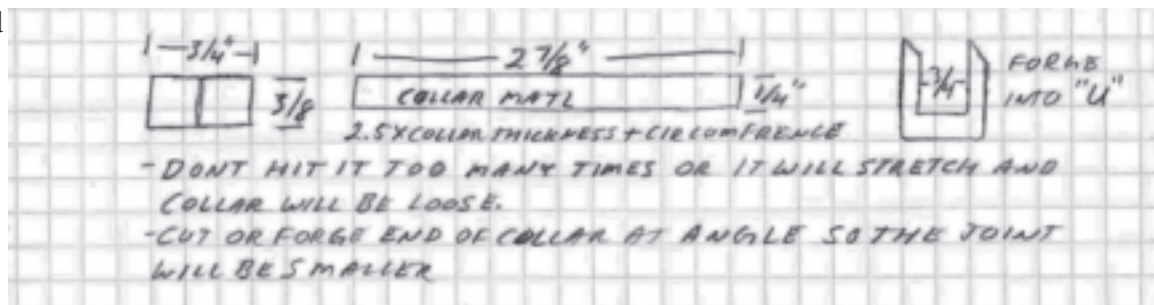 3/4"
2 7/8"
3/8
COLLAR MATL
1/4"
3/4
FORGE
INTO "U"
2.5XCOLLAR THICKNESS + CIRCUMFRENCE
- DONT HIT IT TOO MANY TIMES OR IT WILL STRETCH AND
COLLAR WILL BE LOOSE.
-CUT OR FORGE END OF COLLAR AT ANGLE SO THE JOINT
WILL BE SMALLER